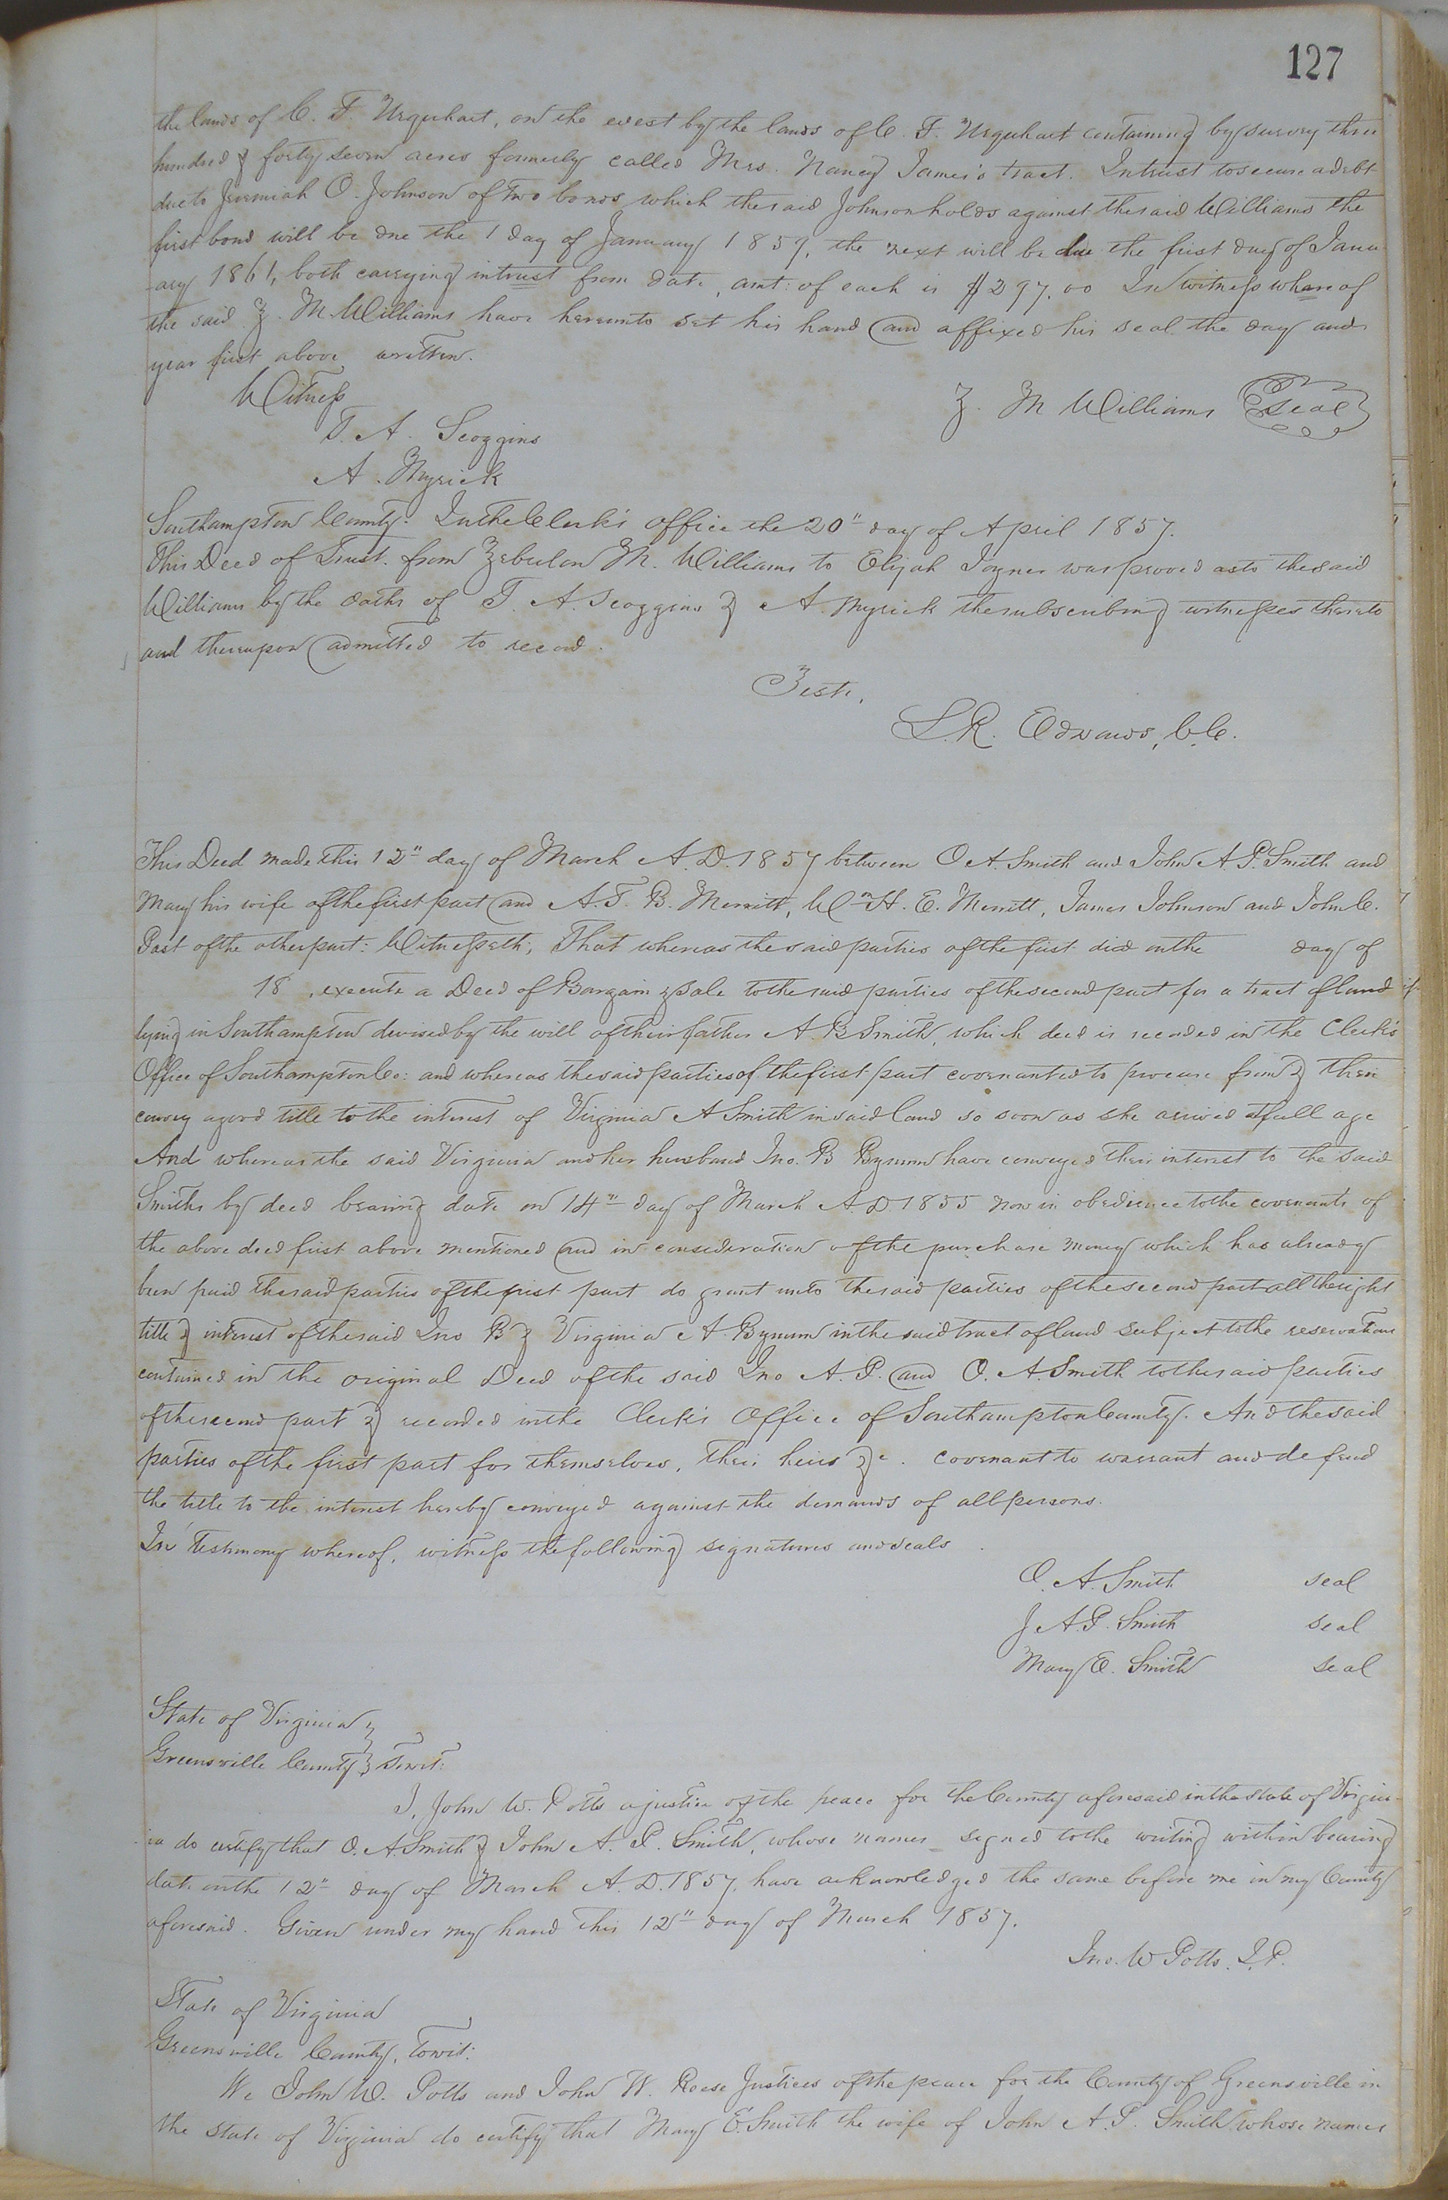 127
the lands of C. F. Urquhart, on the west by the lands of C. F. Urquhart containing by survey three
hundred & forty seven acres formerly called Mrs. Nancy James's tract. In trust to secure a debt
due to Jeremiah O. Johnson of two bonds which the said Johnson holds against the said Williams the
first bond will be due the 1 day of January 1859, the next will be due the first day of Janu
ary 1861, both carrying intrust from date, amt: of each is $297.00 In witness whereof
the said Z. M. Williams have hereunto set his hand and affixed his seal the day and
year first above written.
Witness
Z. M Williams seal
T. A. Scoggins
A. Myrick
Southampton County: In the Clerk's office the 20" day of April 1857.
This Deed of Trust from Zebulon M. Williams to Elijah Joyner was proved as to the said
Williams by the oaths of T. A. Scoggins & A. Myrick the subscribing witnesses thereto
and thereupon admitted to record.
Teste,
L. R. Edwards, C.C.
This Deed made this 12" day of March A.D. 1857 between O. A. Smith and John A. P. Smith and
Mary his wife of the first part and A. T. B. Merritt, Wm H. E. Merritt, James Johnson and John C.
Post of the other part: Witnesseth; That whereas the said parties of the first did on the day of
18 , execute a Deed of Bargain & Sale to the said parties of the second part for a tract of land
lying in Southampton devised by the will of their father A. B Smith, which deed is recorded in the Clerk's
Office of Southampton Co: and whereas the said parties of the first part covenanted to procure from & then
convey a good title to the interest of Virginia A Smith in said land so soon as she arrived at full age
And whereas the said Virginia and her husband Jno. B Bynum have conveyed their interest to the said
Smiths by deed bearing date on 14" day of March A.D 1855 now in obedience to the covenants of
the above deed first above mentioned and in consideration of the purchase money which has already
been paid the said parties of the first part do grant unto the said parties of the second part all the right
title & interest of the said Jno B & Virginia A. Bynum in the said tract of land subject to the reservations
contained in the original Deed of the said Jno A. P. and O. A. Smith to the said parties
of the second part & recorded in the Clerk's Office of Southampton County. And the said
parties of the first part for themselves, their heirs &c. covenant to warrant and defend
the title to the interest hereby conveyed against the demands of all persons.
In testimony whereof, witness the following signatures and seals
O. A. Smith seal
J A. P. Smith seal
Mary E. Smith seal
State of Virginia
Greensville County } Towit:
I, John W. Potts a justice of the peace for the County aforesaid in the state of Virgin-
ia do certify that O. A. Smith & John A. P. Smith, whose names signed to the writing within bearing
date on the 12" day of March A.D. 1857, have acknowledged the same before me in my County
aforesaid. Given under my hand this 12" day of March 1857.
Jno. W Potts. J.P.
State of Virginia
Greensville County, Towit:
We John W. Potts and John W. Reese Justices of the peace for the County of Greensville in
the state of Virginia do certify that Mary E. Smith the wife of John A. P. Smith whose names